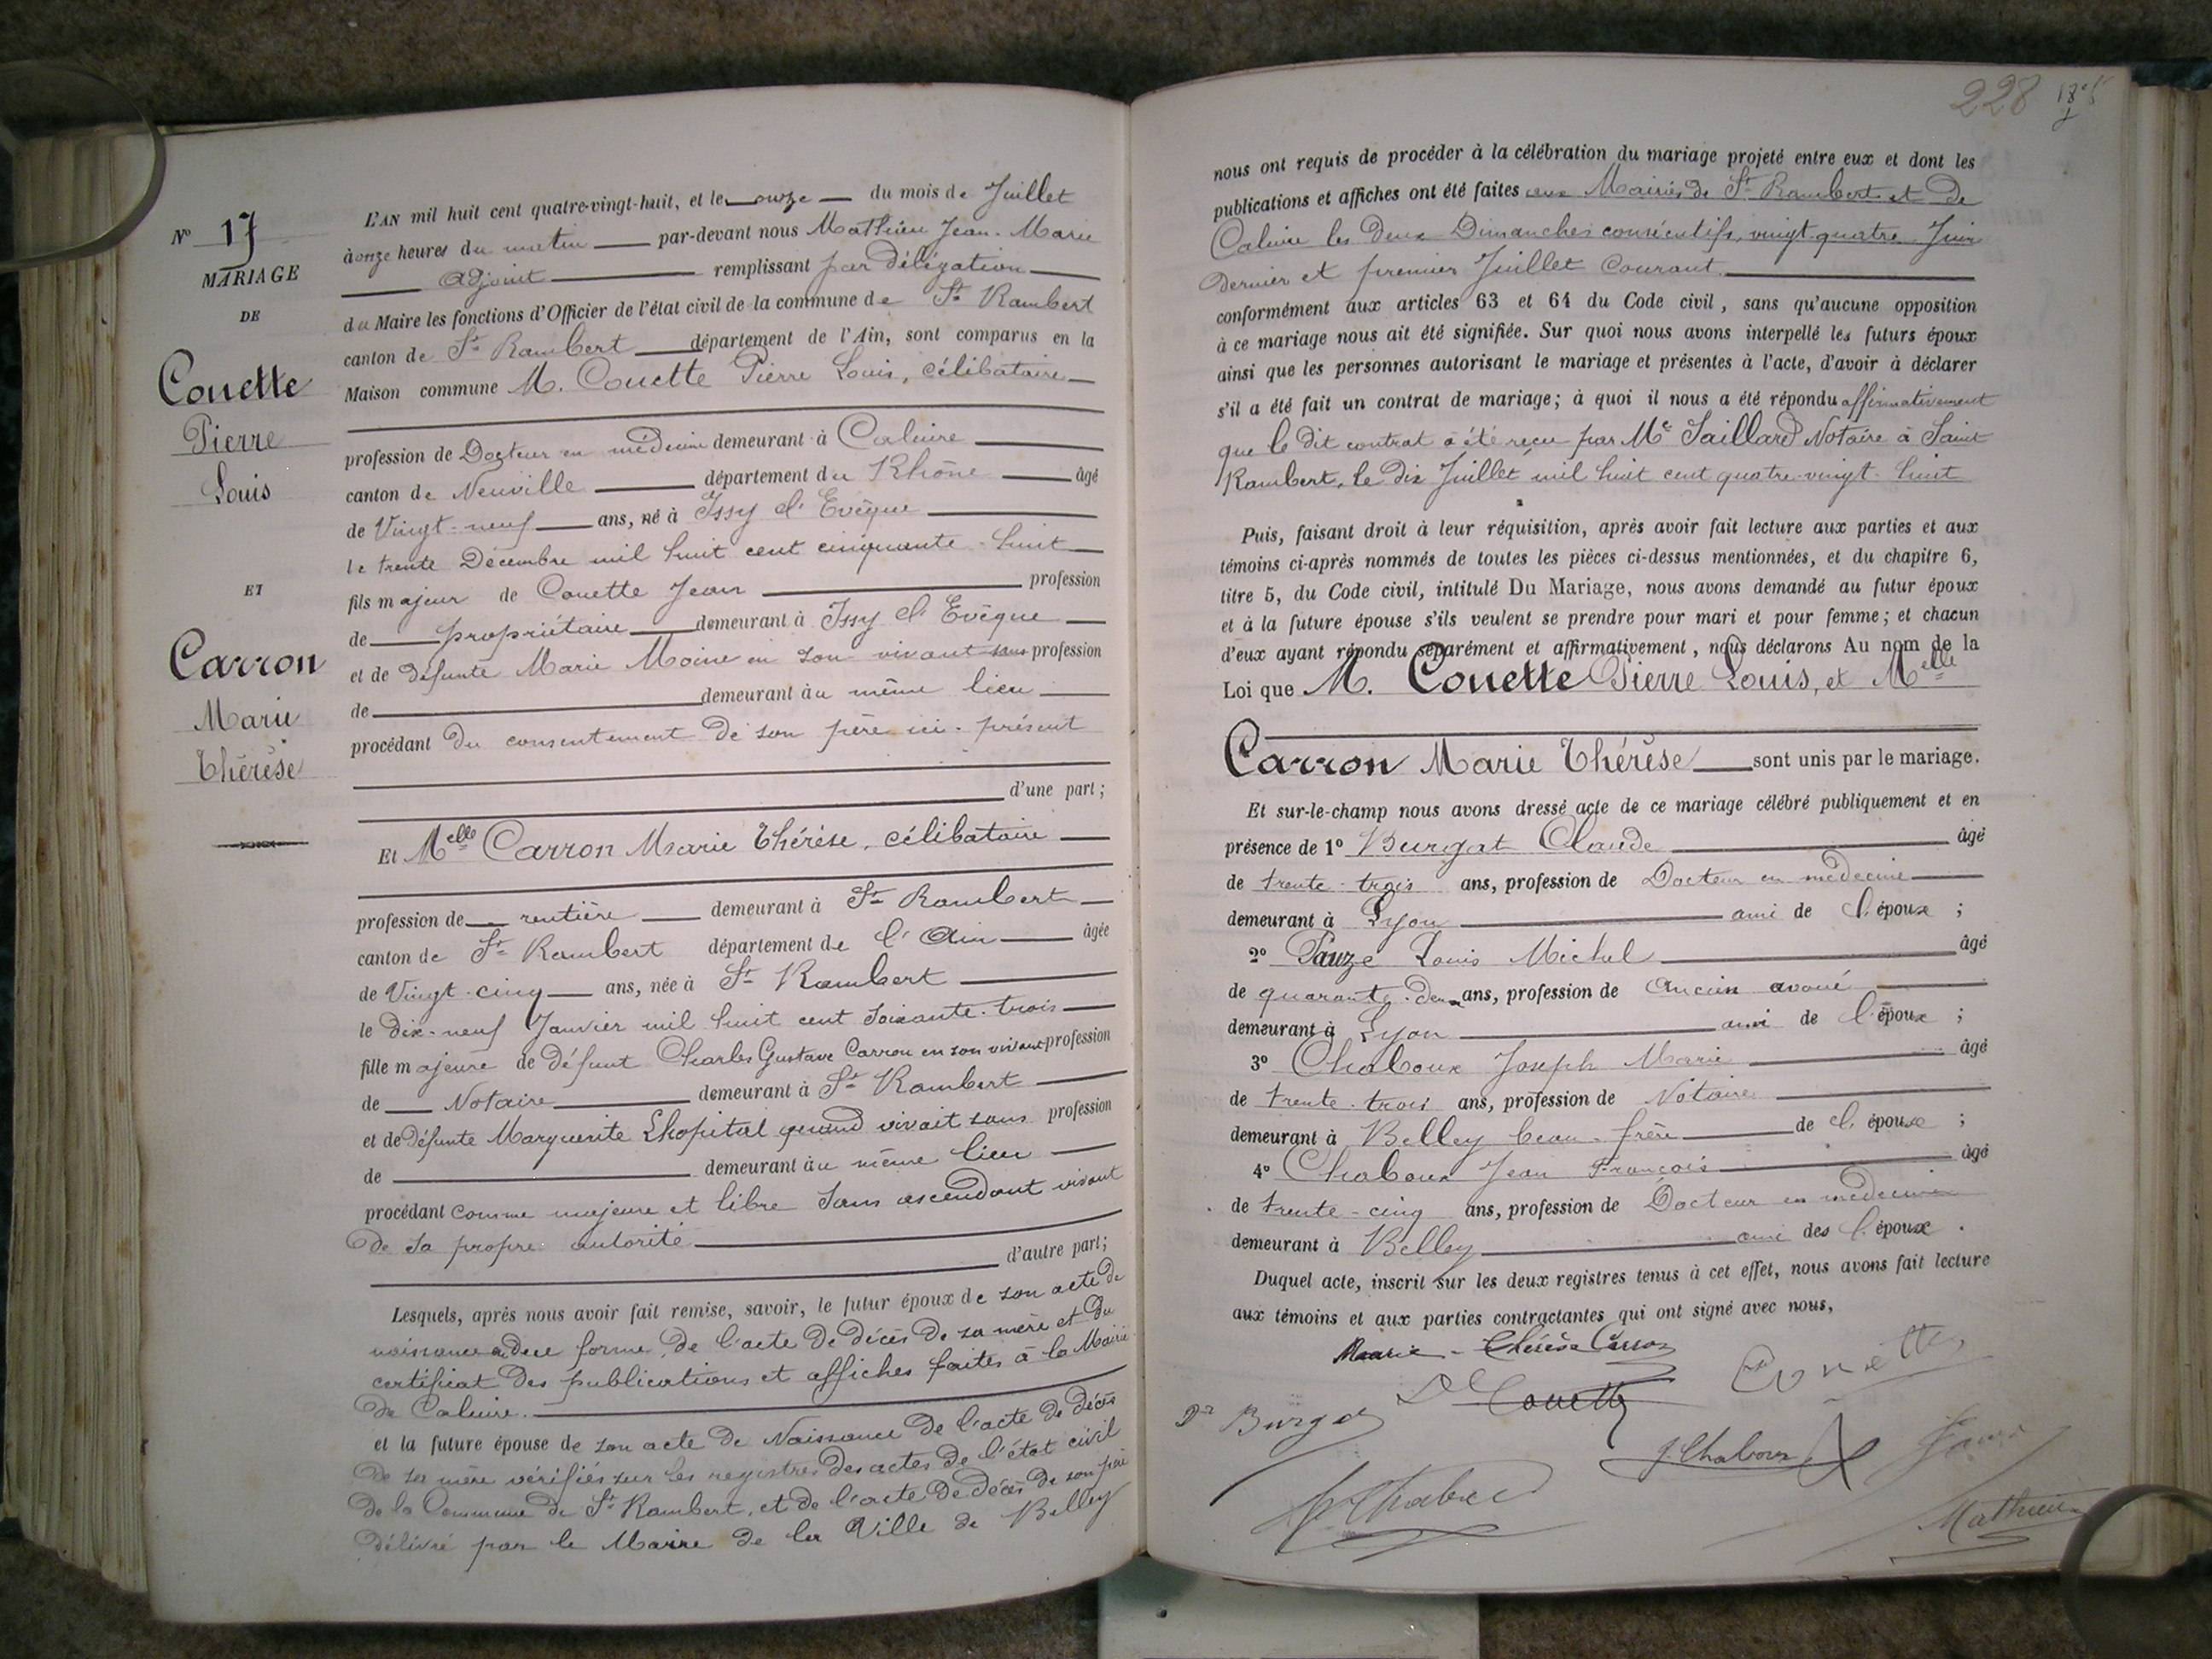 N° 17
MARIAGE
DE
Couette
Pierre
Louis
ET
Carron
Marie
Thérèse
L'AN mil huit cent quatre-vingt-huit, et le onze du mois de Juillet
à onze heures du matin par-devant nous Mathieu Jean-Marie
Adjoint remplissant par délégation
du Maire les fonctions d'Officier de l'état civil de la commune de St Rambert
canton de St Rambert département de l'Ain, sont comparus en la
Maison commune M. Couette Pierre Louis, célibataire
profession de Docteur en médecine demeurant à Caluire
canton de Neuville département du Rhône âgé
de Vingt-neuf ans, né à Issy l'Evêque
le trente Décembre mil huit cent cinquante-huit
fils majeur de Couette Jean profession
de propriétaire demeurant à Issy l'Evêque
et de défunte Marie Moine en son vivant sans profession
de demeurant au même lieu
procédant du consentement de son père ici-présent
d'une part;
Et Melle Carron Marie Thérèse, célibataire
profession de rentière demeurant à St Rambert
canton de St Rambert département de l'Ain âgée
de Vingt-cinq ans, née à St Rambert
le dix-neuf Janvier mil huit cent soixante-trois
fille majeure de défunt Charles Gustave Carron en son vivant profession
de Notaire demeurant à St Rambert
et de défunte Marguerite Lhopital quand vivait sans profession
de demeurant au même lieu
procédant comme majeure et libre sans ascendant vivant
de sa propre autorité
d'autre part;
Lesquels, après nous avoir fait remise, savoir, le futur époux de son acte de
naissance en due forme, de l'acte de décès de sa mère et du
certificat des publications et affiches faites à la Mairie
de Caluire.
et la future épouse de son acte de Naissance de l'acte de décès
de sa mère vérifiés sur les registres des actes de l'état civil
de la Commune de St Rambert, et de l'acte de décès de son père
délivré par le Maire de la Ville de Belley
228
nous ont requis de procéder à la célébration du mariage projeté entre eux et dont les
publications et affiches ont été faites aux Mairies de St Rambert et de
Caluire les deux Dimanches consécutifs, vingt-quatre Juin
dernier et premier Juillet courant.
conformément aux articles 63 et 64 du Code civil, sans qu'aucune opposition
à ce mariage nous ait été signifiée. Sur quoi nous avons interpellé les futurs époux
ainsi que les personnes autorisant le mariage et présentes à l'acte, d'avoir à déclarer
s'il a été fait un contrat de mariage; à quoi il nous a été répondu affirmativement
que le dit contrat a été reçu par Me Saillard Notaire à Saint
Rambert, le dix Juillet mil huit cent quatre-vingt-huit
Puis, faisant droit à leur réquisition, après avoir fait lecture aux parties et aux
témoins ci-après nommés de toutes les pièces ci-dessus mentionnées, et du chapitre 6,
titre 5, du Code civil, intitulé Du Mariage, nous avons demandé au futur époux
et à la future épouse s'ils veulent se prendre pour mari et pour femme; et chacun
d'eux ayant répondu séparément et affirmativement, nous déclarons Au nom de la
Loi que M. Couette Pierre Louis, et Melle
Carron Marie Thérèse sont unis par le mariage.
Et sur-le-champ nous avons dressé acte de ce mariage célébré publiquement et en
présence de 1° Burgat Claude âgé
de trente-trois ans, profession de Docteur en médecine
demeurant à Lyon ami de l'époux;
2° Pauze Louis Michel âgé
de quarante-deux ans, profession de Ancien avoué
demeurant à Lyon ami de l'époux;
3° Chaboux Joseph Marie âgé
de trente-trois ans, profession de Notaire
demeurant à Belley beau-frère de l'épouse;
4° Chaboux Jean François âgé
de trente-cinq ans, profession de Docteur en médecine
demeurant à Belley ami des l'épouse.
Duquel acte, inscrit sur les deux registres tenus à cet effet, nous avons fait lecture
aux témoins et aux parties contractantes qui ont signé avec nous,
Marie-Thérèse Carron
Dr Couette
Couette
Dr Burgat
J. Chaboux
Mathieu